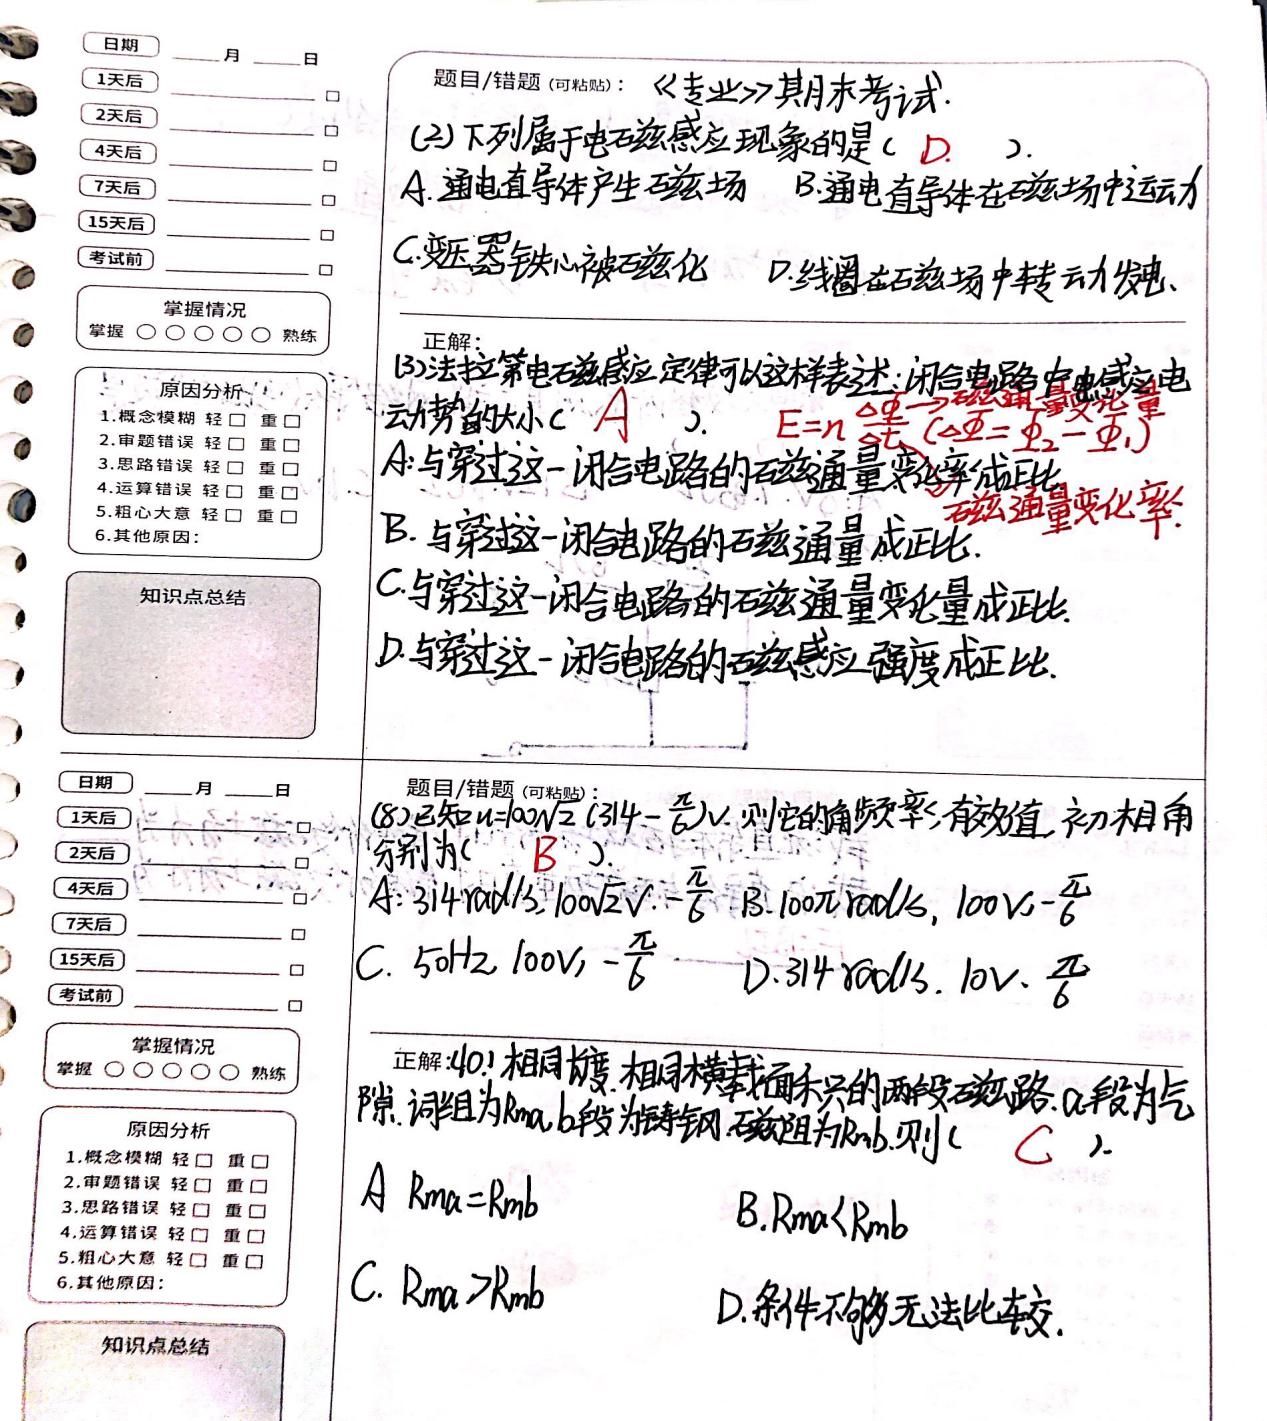 日期 ____月 ____日
1天后
2天后
4天后
7天后
15天后
考试前
掌握情况
掌握 ○○○○○ 熟练
原因分析
1.概念模糊 轻□ 重□
2.审题错误 轻□ 重□
3.思路错误 轻□ 重□
4.运算错误 轻□ 重□
5.粗心大意 轻□ 重□
6.其他原因:
知识点总结
题目/错题 (可粘贴): 《专业》其月末考试.
(2)下列属于电磁感应现象的是( D. ).
A.通电直导体产生磁场 B.通电直导体在磁场中运动
C.变压器铁心被磁化 D.线圈在磁场中转动发电.
正解:
(3)法拉第电磁感应定律可以这样表述:闭合电路中电感应电
动势的大小( A ).
E=n ΔΦ/Δt → 磁通量变化量
(ΔΦ=Φ2-Φ1)
磁通量变化率.
A:与穿过这一闭合电路的磁通量变化率成正比
B.与穿过这一闭合电路的磁通量成正比.
C.与穿过这一闭合电路的磁通量变化量成正比.
D.与穿过这一闭合电路的磁感应强度成正比.
日期 ____月 ____日
1天后
2天后
4天后
7天后
15天后
考试前
掌握情况
掌握 ○○○○○ 熟练
原因分析
1.概念模糊 轻□ 重□
2.审题错误 轻□ 重□
3.思路错误 轻□ 重□
4.运算错误 轻□ 重□
5.粗心大意 轻□ 重□
6.其他原因:
知识点总结
题目/错题 (可粘贴):
(8)已知u=100√2(314-π/6)V.则它的角频率,有效值,初相角
分别为( B ).
A:314rad/s,100√2V.-π/6 B.100πrad/s,100V,-π/6
C.50Hz,100V,-π/6 D.314rad/s.10V.π/6
正解:40!相同长度.相同横截面的两段磁路.a段为气
隙.词组为Rma,b段为铸钢.磁阻为Rmb.则( C ).
A Rma=Rmb B.Rma<Rmb
C. Rma>Rmb D.条件不够无法比较.